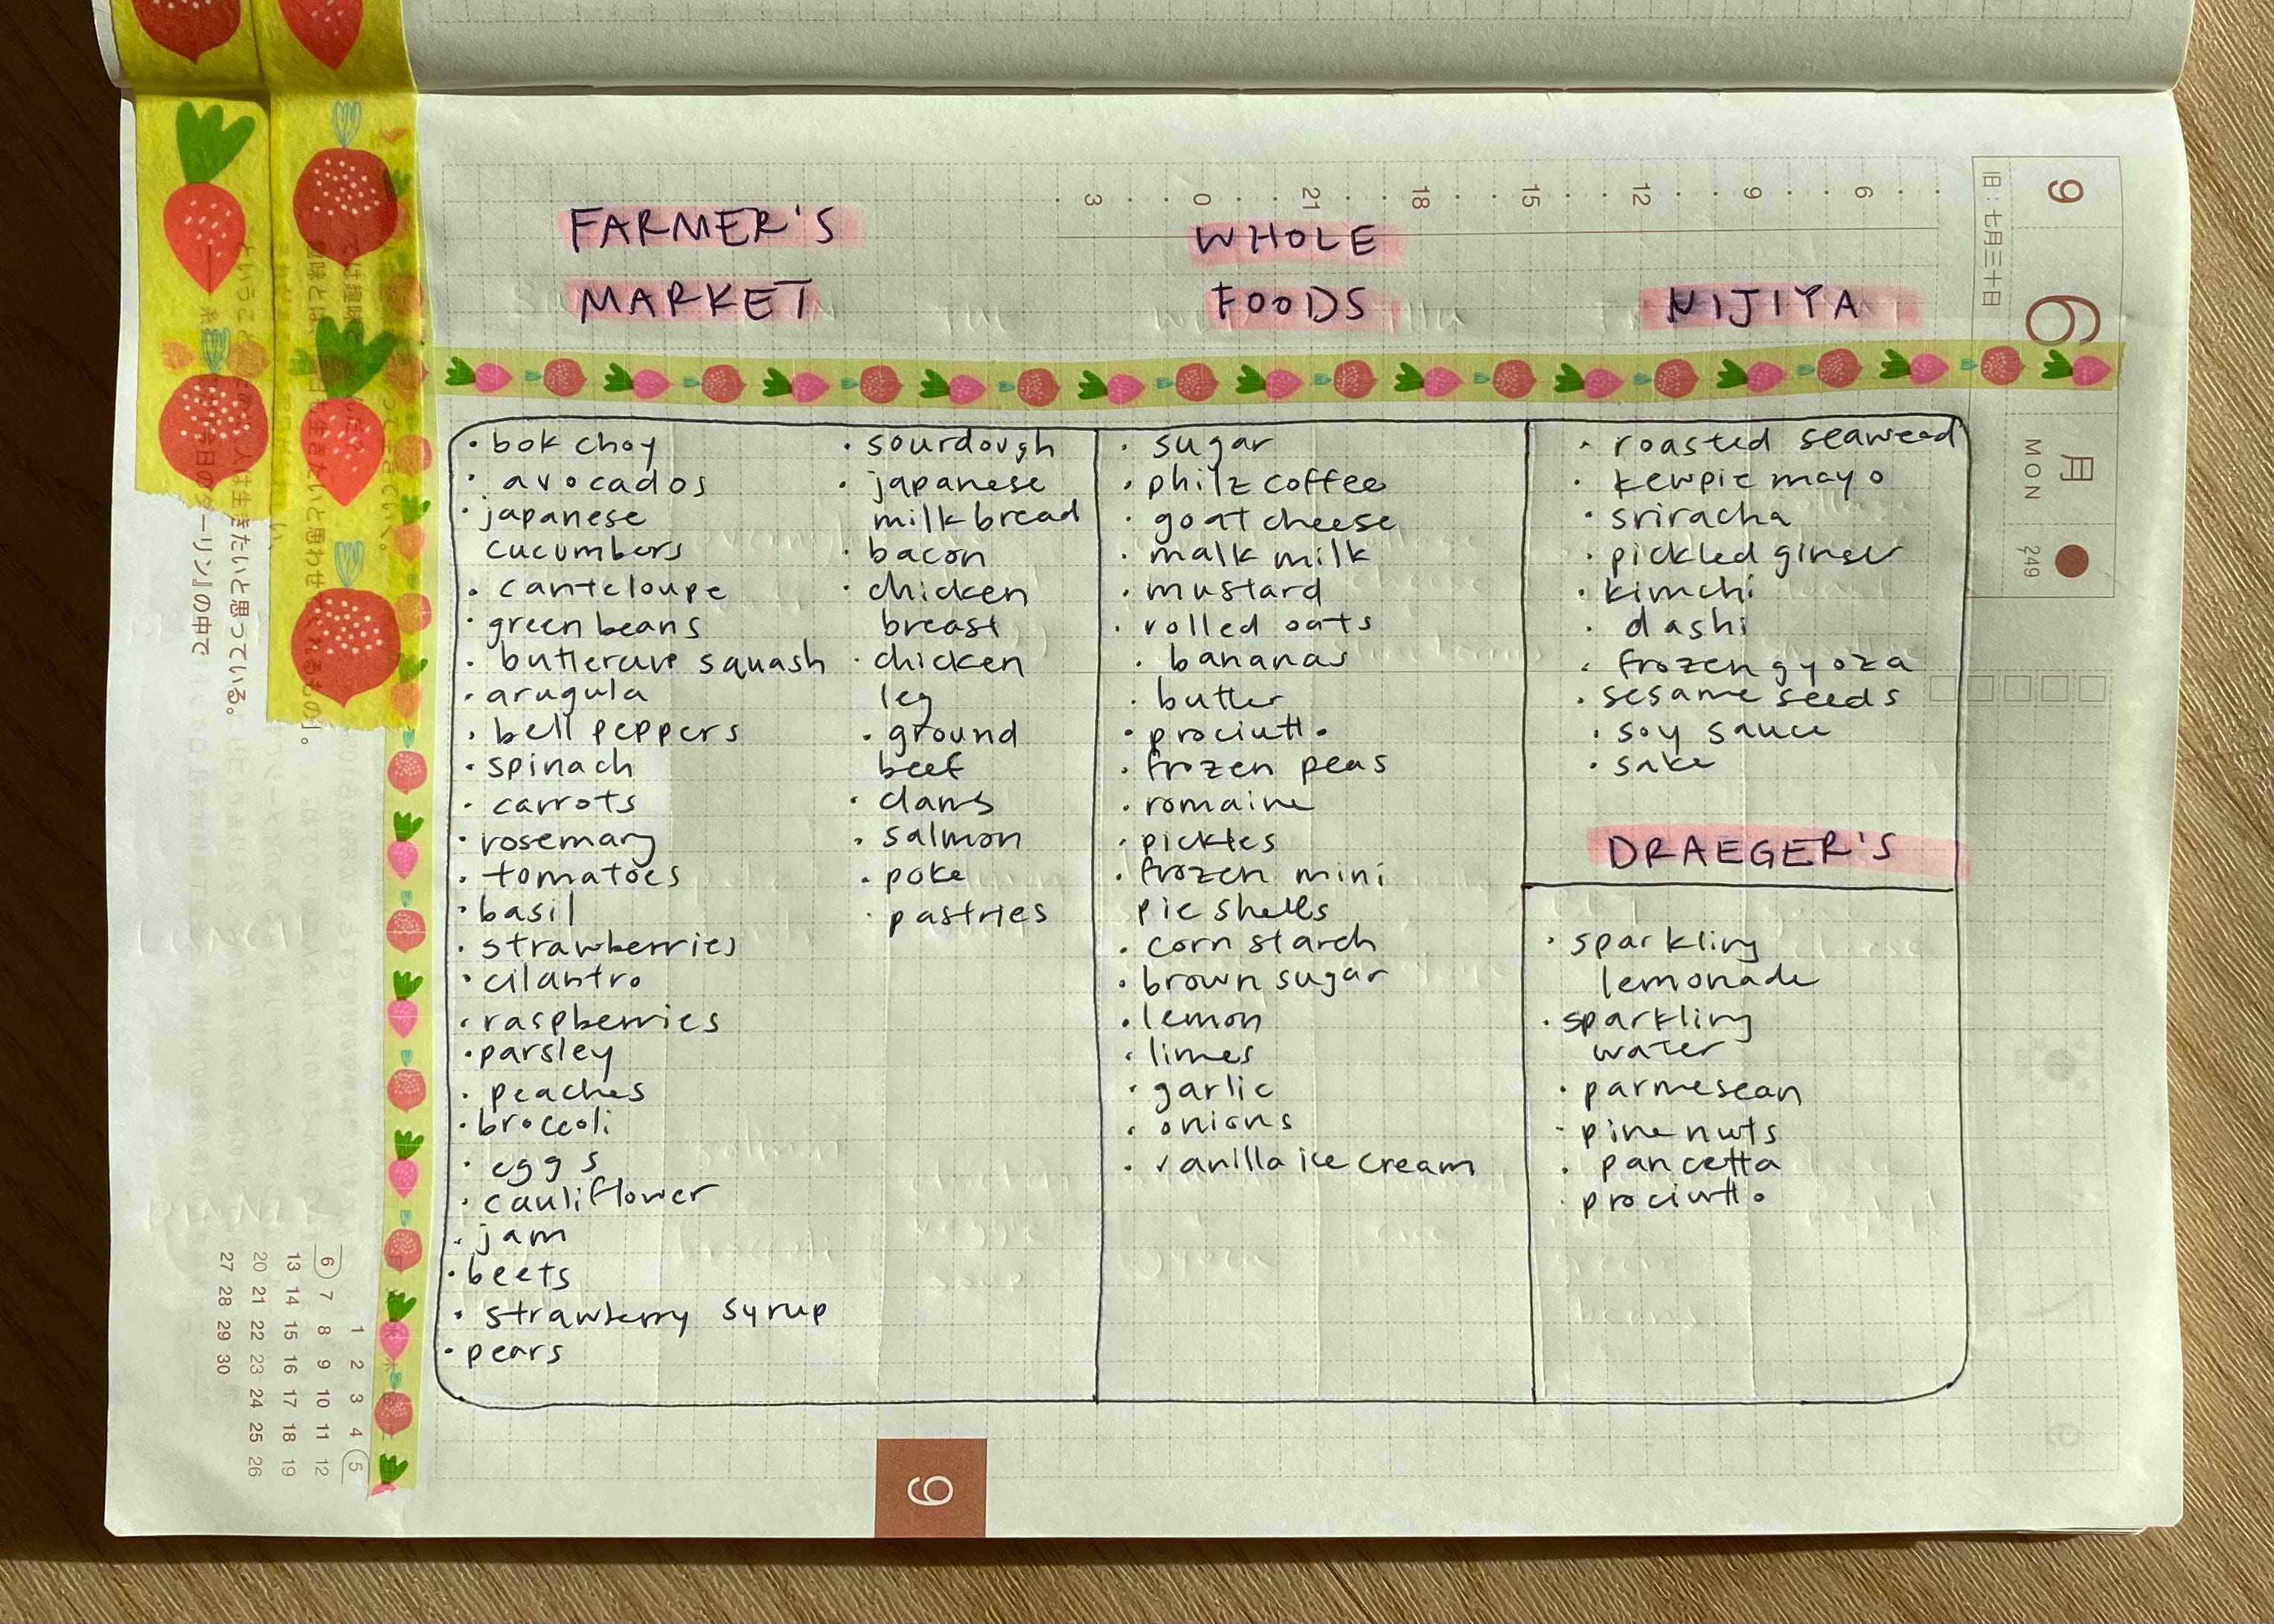 FARMER'S
MARKET
• bok choy
• avocados
• japanese
cucumbers
• canteloupe
• green beans
• buttercup squash
• arugula
• bell peppers
• spinach
• carrots
• rosemary
• tomatoes
• basil
• strawberries
• cilantro
• raspberries
• parsley
• peaches
• broccoli
• eggs
• cauliflower
• jam
• beets
• strawberry syrup
• pears
• sourdough
• japanese
milk bread
• bacon
• chicken
breast
• chicken
leg
• ground
beef
• clams
• salmon
• poke
• pastries
WHOLE
FOODS
• sugar
• philz coffee
• goat cheese
• malk milk
• mustard
• rolled oats
• bananas
• butter
• prociutto
• frozen peas
• romaine
• pickles
• frozen mini
pie shells
• corn starch
• brown sugar
• lemon
• limes
• garlic
• onions
• vanilla ice cream
NIJIYA
• roasted seaweed
• kewpie mayo
• sriracha
• pickled ginger
• kimchi
• dashi
• frozen gyoza
• sesame seeds
• soy sauce
• sake
DRAEGER'S
• sparkling
lemonade
• sparkling
water
• parmesean
• pine nuts
• pancetta
• prociutto
9
6
月
MON
249
旧:七月三十日
6 · · 9 · · 12 · · 15 · · 18 · · 21 · · 0 · · 3 ·
1 2 3 4 5
6 7 8 9 10 11 12
13 14 15 16 17 18 19
20 21 22 23 24 25 26
27 28 29 30
9
人は生きたいと思っている。
『今日のダーリン』の中で